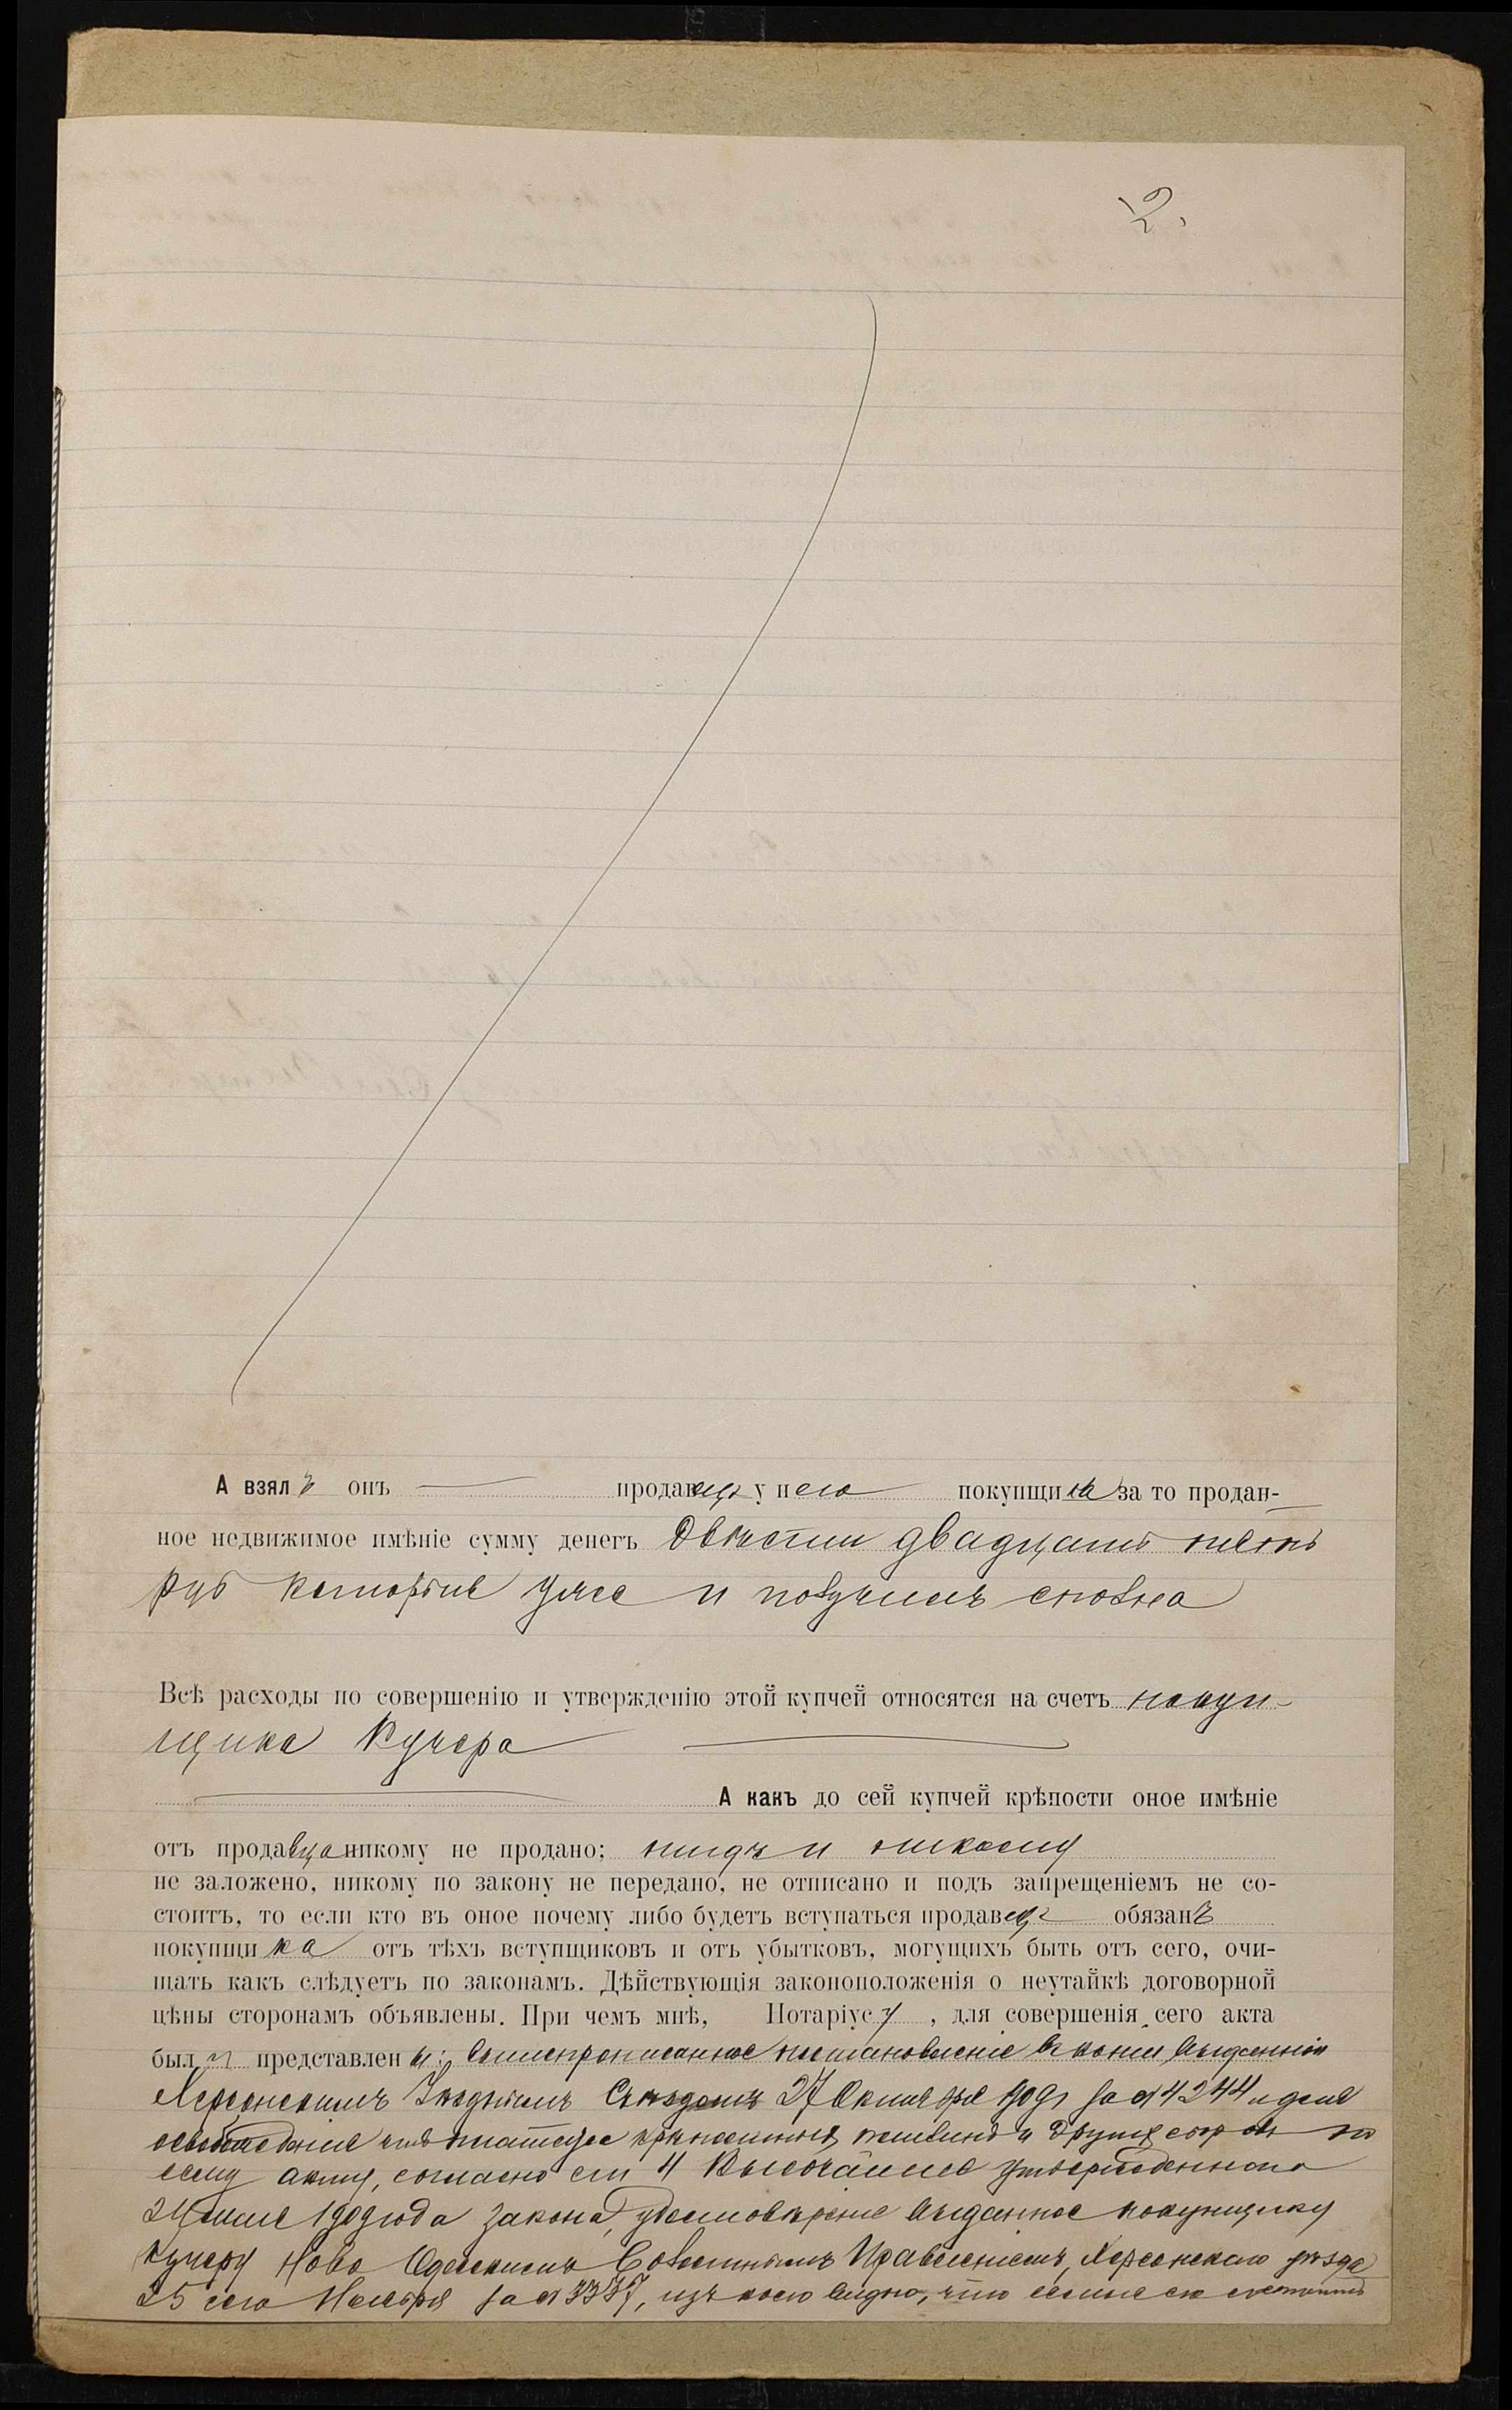 2.
А взялъ онъ — продавецъ у него покупщика за то продан-
ное недвижимое имѣніе сумму денегъ двѣсти двадцать пять
руб которые уже и получилъ сполна
Всѣ расходы по совершенію и утвержденію этой купчей относятся на счетъ покуп-
щика Кучера
А какъ до сей купчей крѣпости оное имѣніе
отъ продавца никому не продано; нигдѣ и никому
не заложено, никому по закону не передано, не отписано и подъ запрещеніемъ не со-
стоитъ, то если кто въ оное почему либо будетъ вступаться продавецъ обязанъ
покупщика отъ тѣхъ вступщиковъ и отъ убытковъ, могущихъ быть отъ сего, очи-
щать какъ слѣдуетъ по законамъ. Дѣйствующія законоположенія о неутайкѣ договорной
цѣны сторонамъ объявлены. При чемъ мнѣ, Нотаріусу, для совершенія сего акта
были представлены: вышепрописанное постановленіе въ копіи выданной
Херсонскимъ Уѣзднымъ Съѣздомъ 27 Октября 1909 г за № 4244 и для
освобожденія отъ платежа крѣпостныхъ пошлинъ и другихъ сборовъ по
сему акту, согласно ст 4 Высочайше утвержденнаго
2 Іюня 1909 года закона, удостовѣреніе выданное покупщику
Кучеру Ново Одесскимъ Волостнымъ Правленіемъ, Херсонскаго уѣзда
25 сего Ноября за № 3337, изъ коего видно, что семья его состоитъ